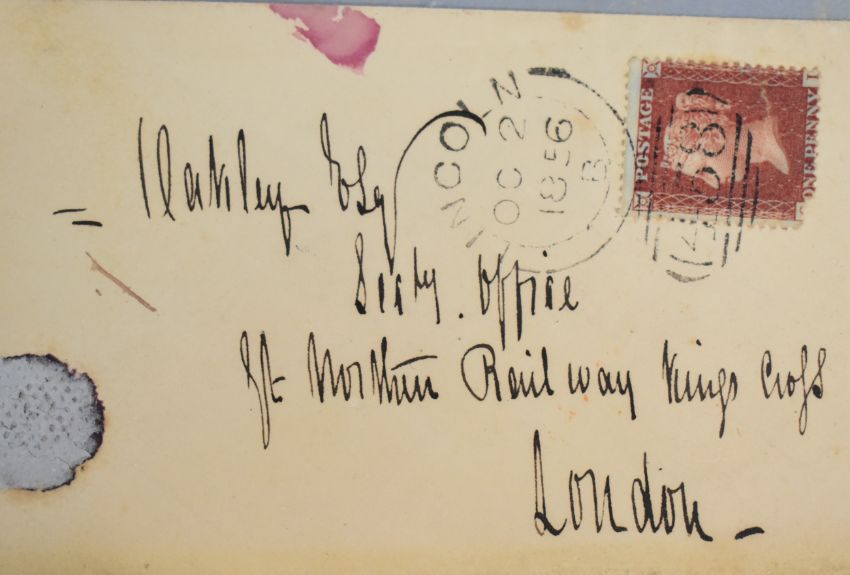 = Oakley Esq
Secty. Office
Gt Northern Railway Kings Cross
London -
LINCOLN
OC 2
1856
B
POSTAGE
ONE PENNY
458